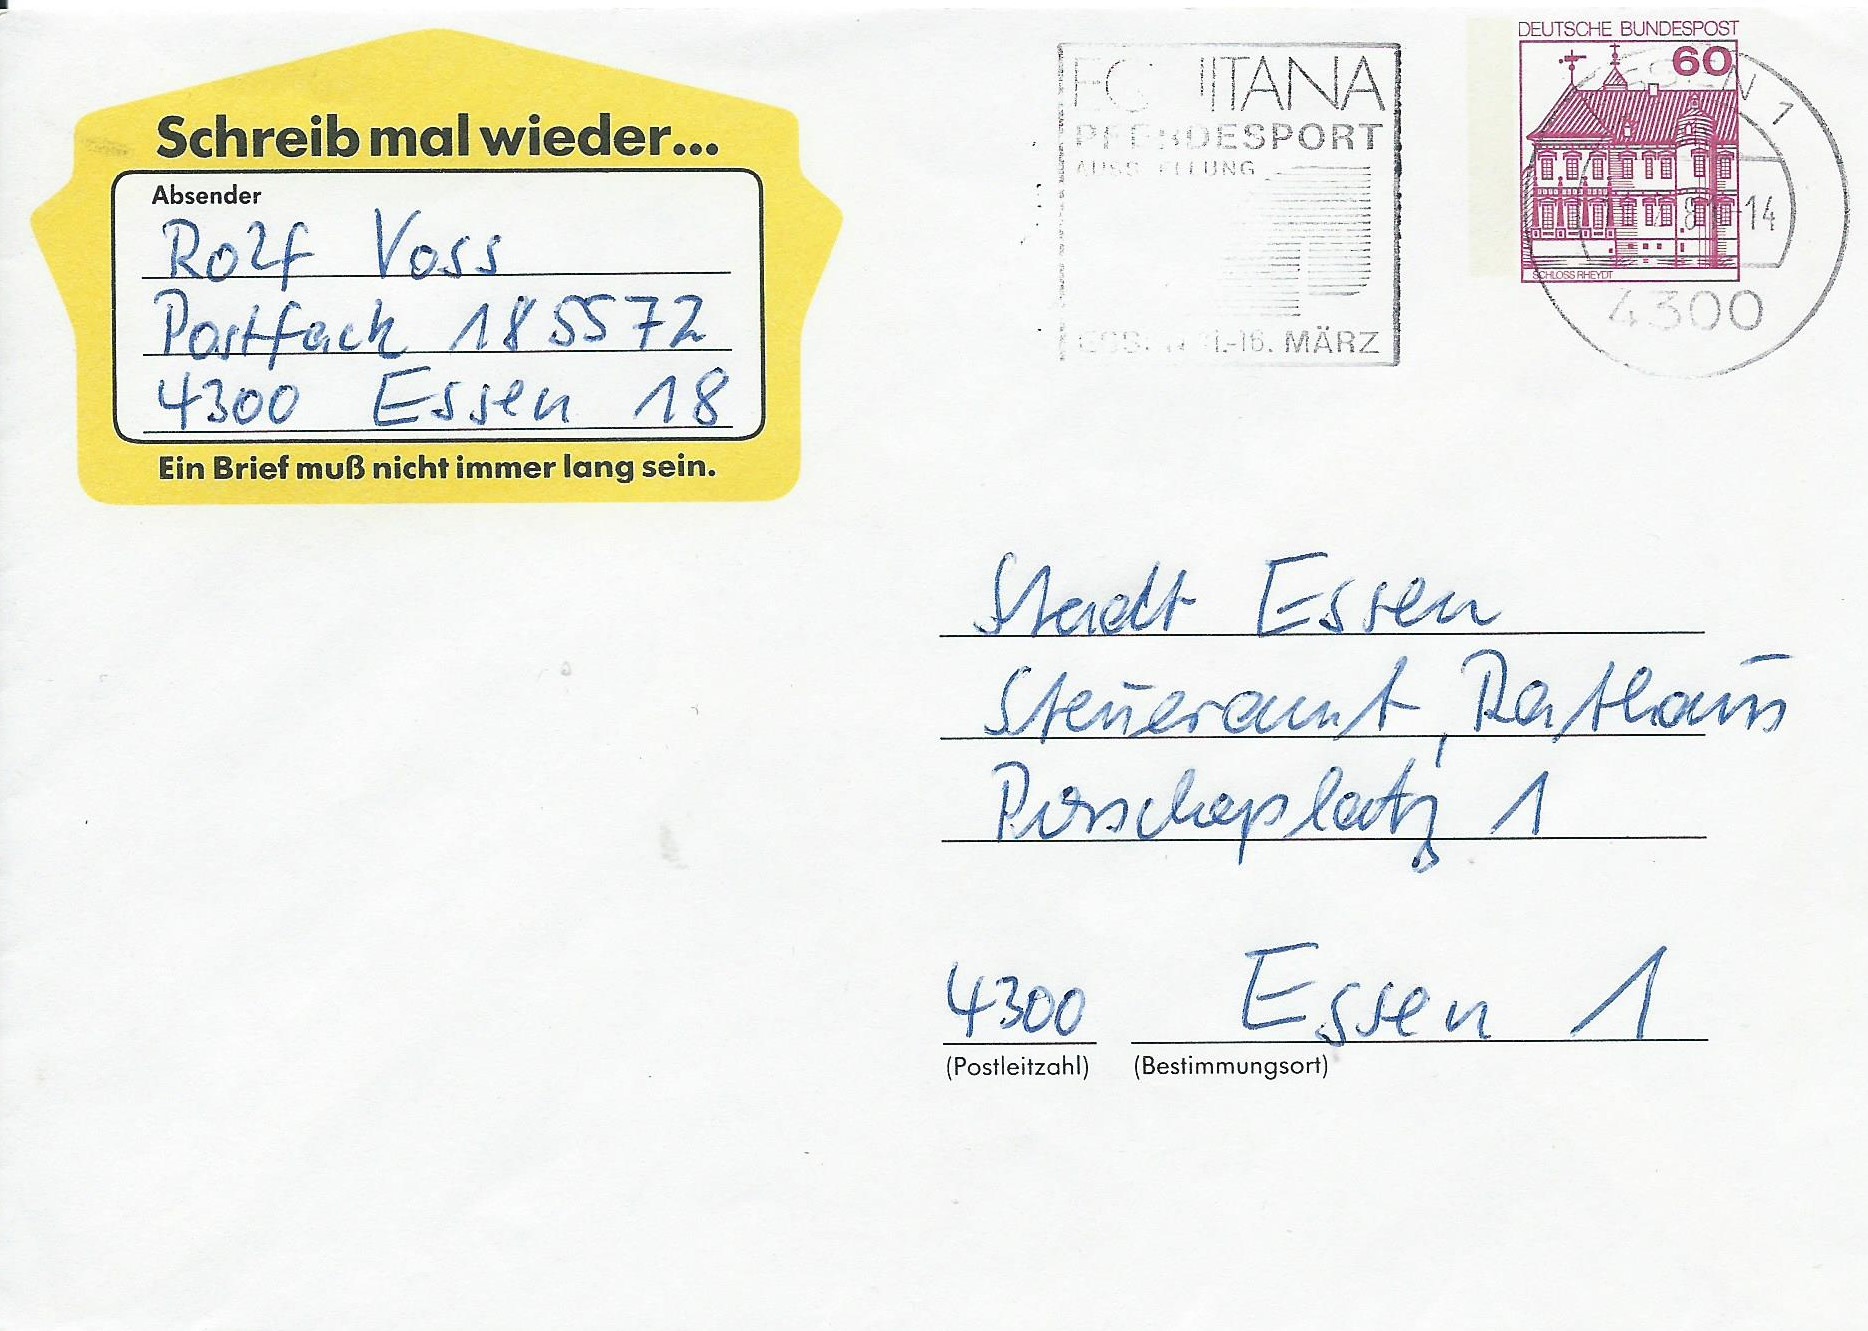 Schreib mal wieder...
Absender
Rolf Voss
Postfach 185572
4300 Essen 18
Ein Brief muß nicht immer lang sein.
PFERDESPORT
AUSSTELLUNG
MÄRZ
DEUTSCHE BUNDESPOST
60
SCHLOSS RHEYDT
ESSEN 1
14
4300
Stadt Essen
Steueramt, Rathaus
Porscheplatz 1
4300 Essen 1
(Postleitzahl) (Bestimmungsort)